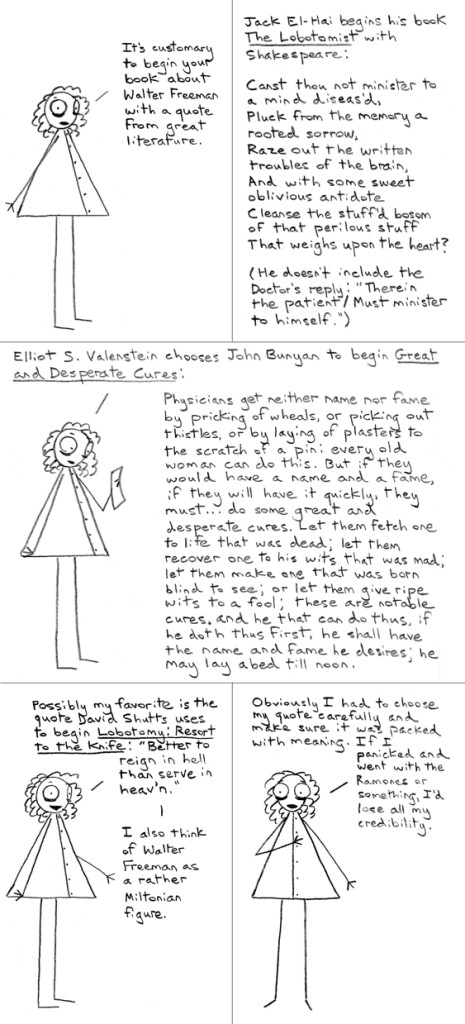 It's customary
to begin your
book about
Walter Freeman
with a quote
from great
literature.
Jack El-Hai begins his book
The Lobotomist with
Shakespeare:
Canst thou not minister to
a mind diseas'd,
Pluck from the memory a
rooted sorrow,
Raze out the written
troubles of the brain,
And with some sweet
oblivious antidote
Cleanse the stuff'd bosom
of that perilous stuff
That weighs upon the heart?
(He doesn't include the
Doctor's reply: "Therein
the patient / Must minister
to himself.")
Elliot S. Valenstein chooses John Bunyan to begin Great
and Desperate Cures:
Physicians get neither name nor fame
by pricking of wheals, or picking out
thistles, or by laying of plasters to
the scratch of a pin; every old
woman can do this. But if they
would have a name and a fame,
if they will have it quickly, they
must... do some great and
desperate cures. Let them fetch one
to life that was dead; let them
recover one to his wits that was mad;
let them make one that was born
blind to see; or let them give ripe
wits to a fool; these are notable
cures, and he that can do thus, if
he doth thus first, he shall have
the name and fame he desires; he
may lay abed till noon.
Possibly my favorite is the
quote David Shutts uses
to begin Lobotomy: Resort
to the Knife: "Better to
reign in hell
than serve in
heav'n."
I also think
of Walter
Freeman as
a rather
Miltonian
figure.
Obviously I had to choose
my quote carefully and
make sure it was packed
with meaning. If I
panicked and
went with the
Ramones or
something, I'd
lose all my
credibility.